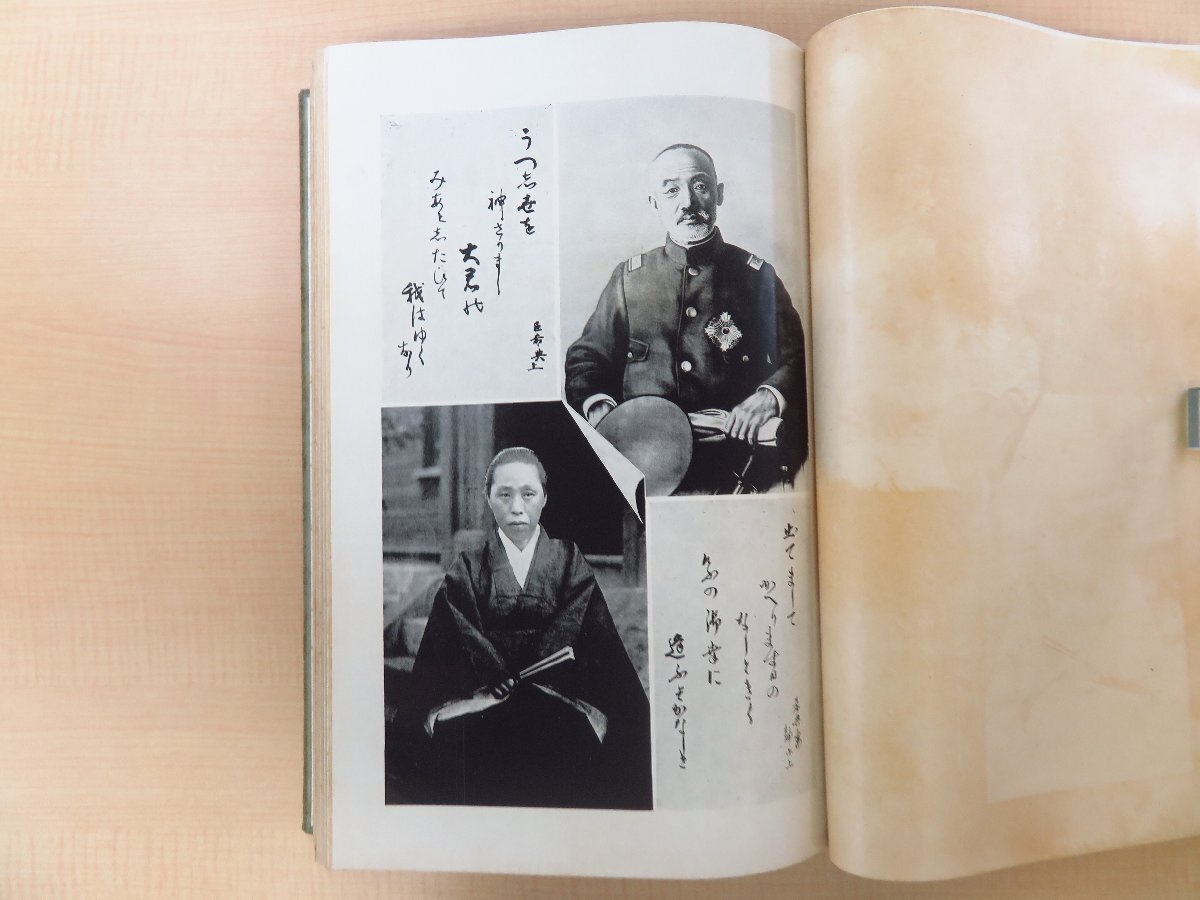 臣希典上
うつ志世を
神さりましゝ
大君の
みあと志たひて
我はゆく
なり
出てまして
かへります日の
なしときく
けふの御幸に
逢ふそかなしき